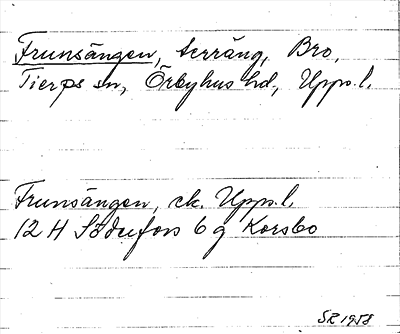 Frunsängen, terräng, Bro,
Tierps sn, Örbyhus hd, Upps. l.
Frunsängen, ek. Upps. l.
12 H Söderfors 6 g Korsbo
SR 1958